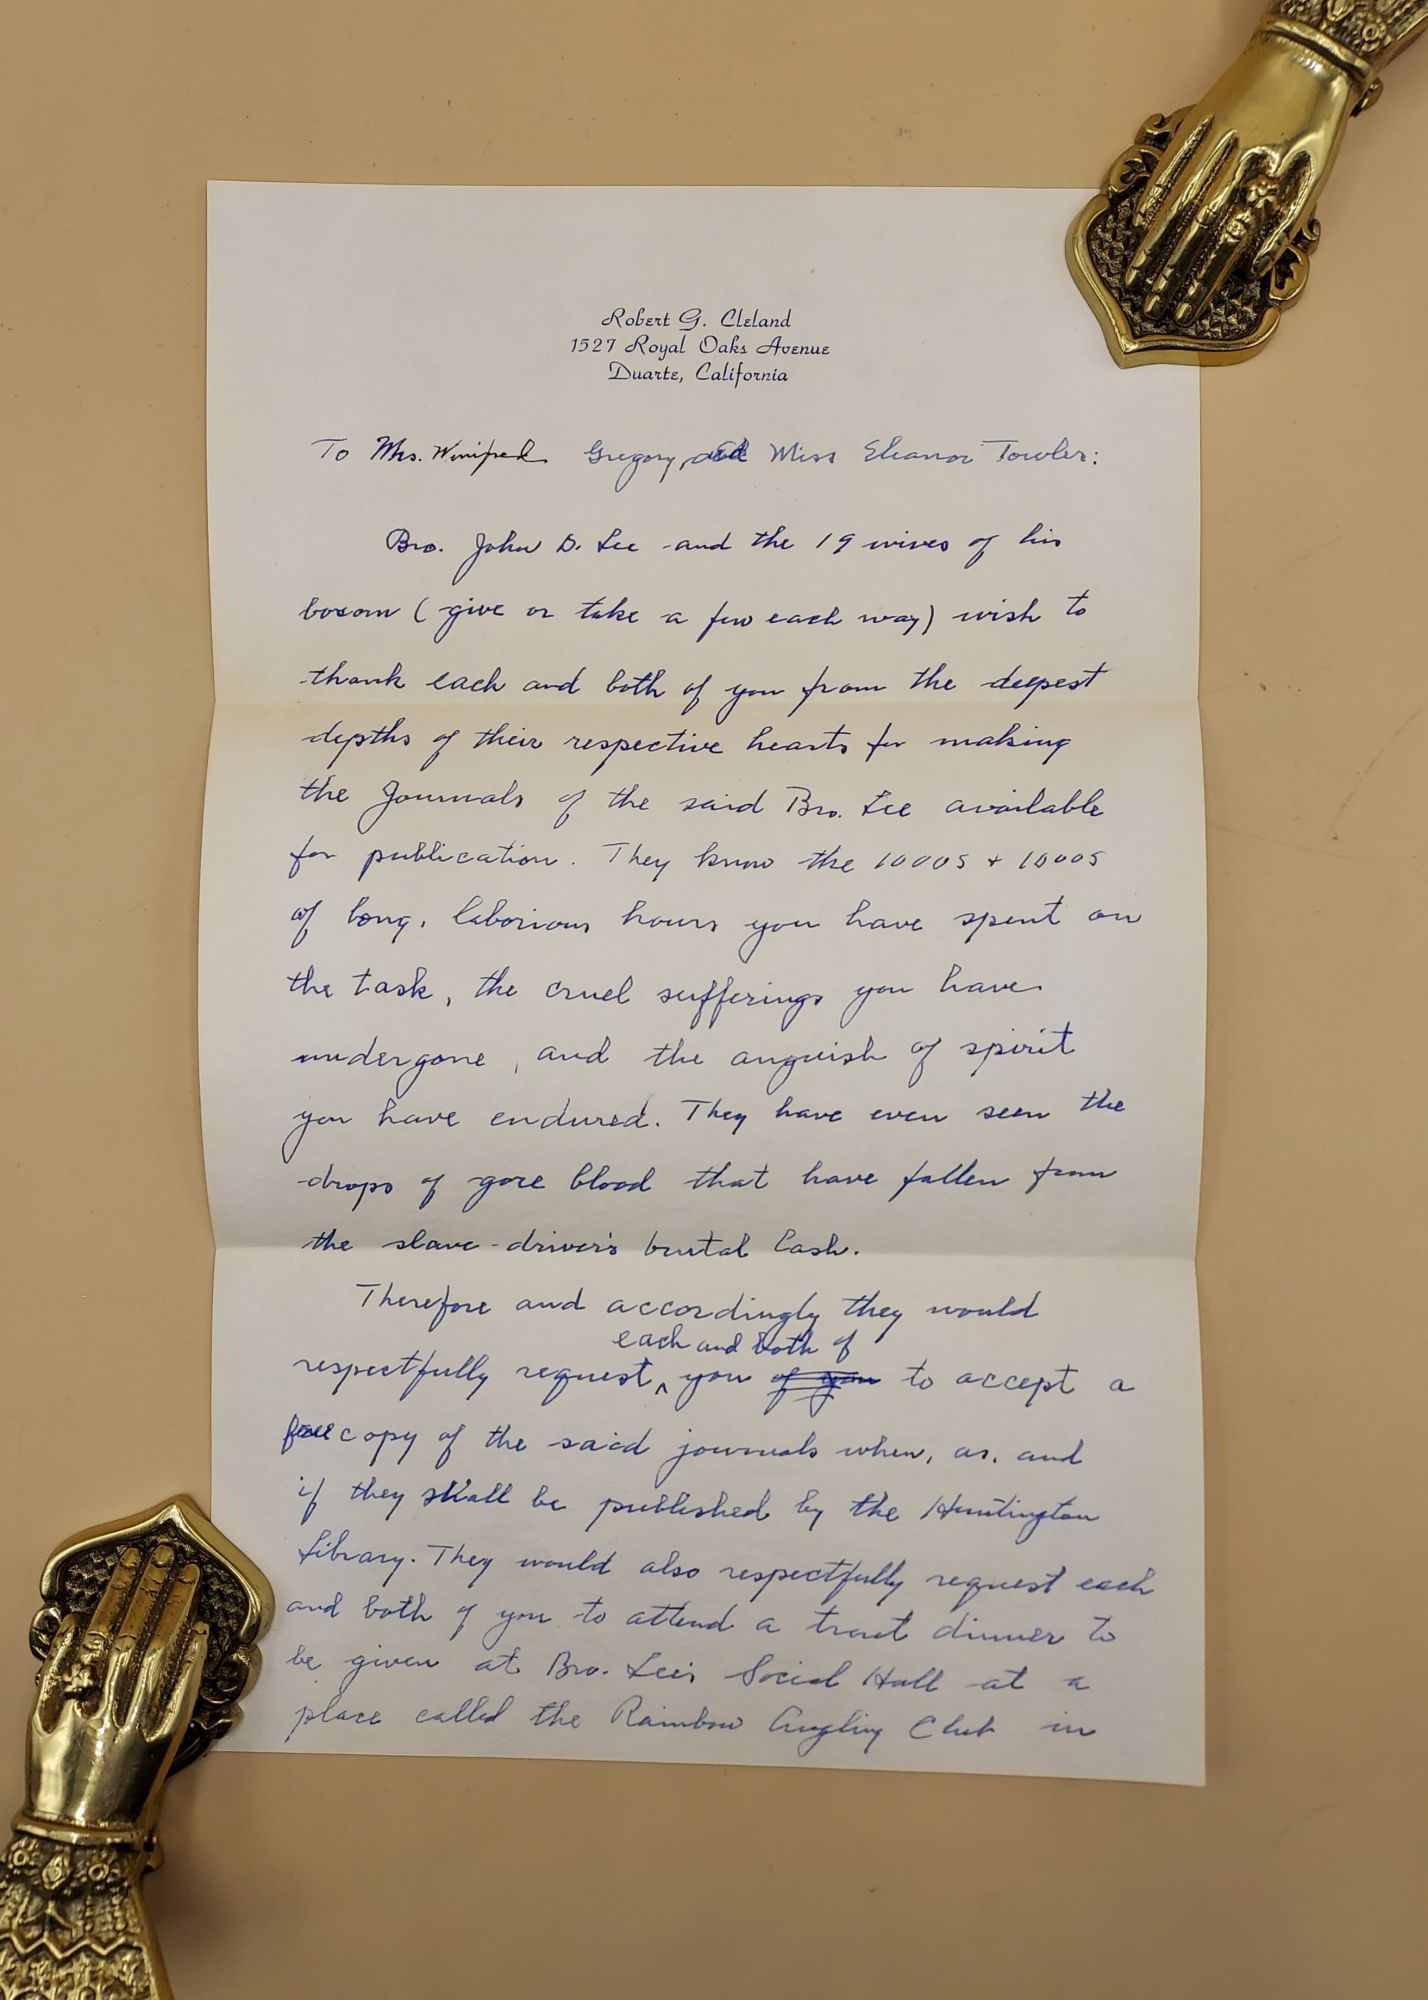 Robert G. Cleland
1527 Royal Oaks Avenue
Duarte, California
To Mrs. Winifred Gregory, and Miss Eleanor Towler:
Bro. John D. Lee and the 19 wives of his
bosom (give or take a few each way) wish to
thank each and both of you from the deepest
depths of their respective hearts for making
the Journals of the said Bro. Lee available
for publication. They know the 1000s + 1000s
of long, laborious hours you have spent on
the task, the cruel sufferings you have
undergone, and the anguish of spirit
you have endured. They have even seen the
drops of gore blood that have fallen from
the slave-driver's brutal lash.
Therefore and accordingly they would
each and both of
respectfully request ^ you of you to accept a
free copy of the said journals when, as, and
if they shall be published by the Huntington
Library. They would also respectfully request each
and both of you to attend a trout dinner to
be given at Bro. Lee's Social Hall at a
place called the Rainbow Angling Club in